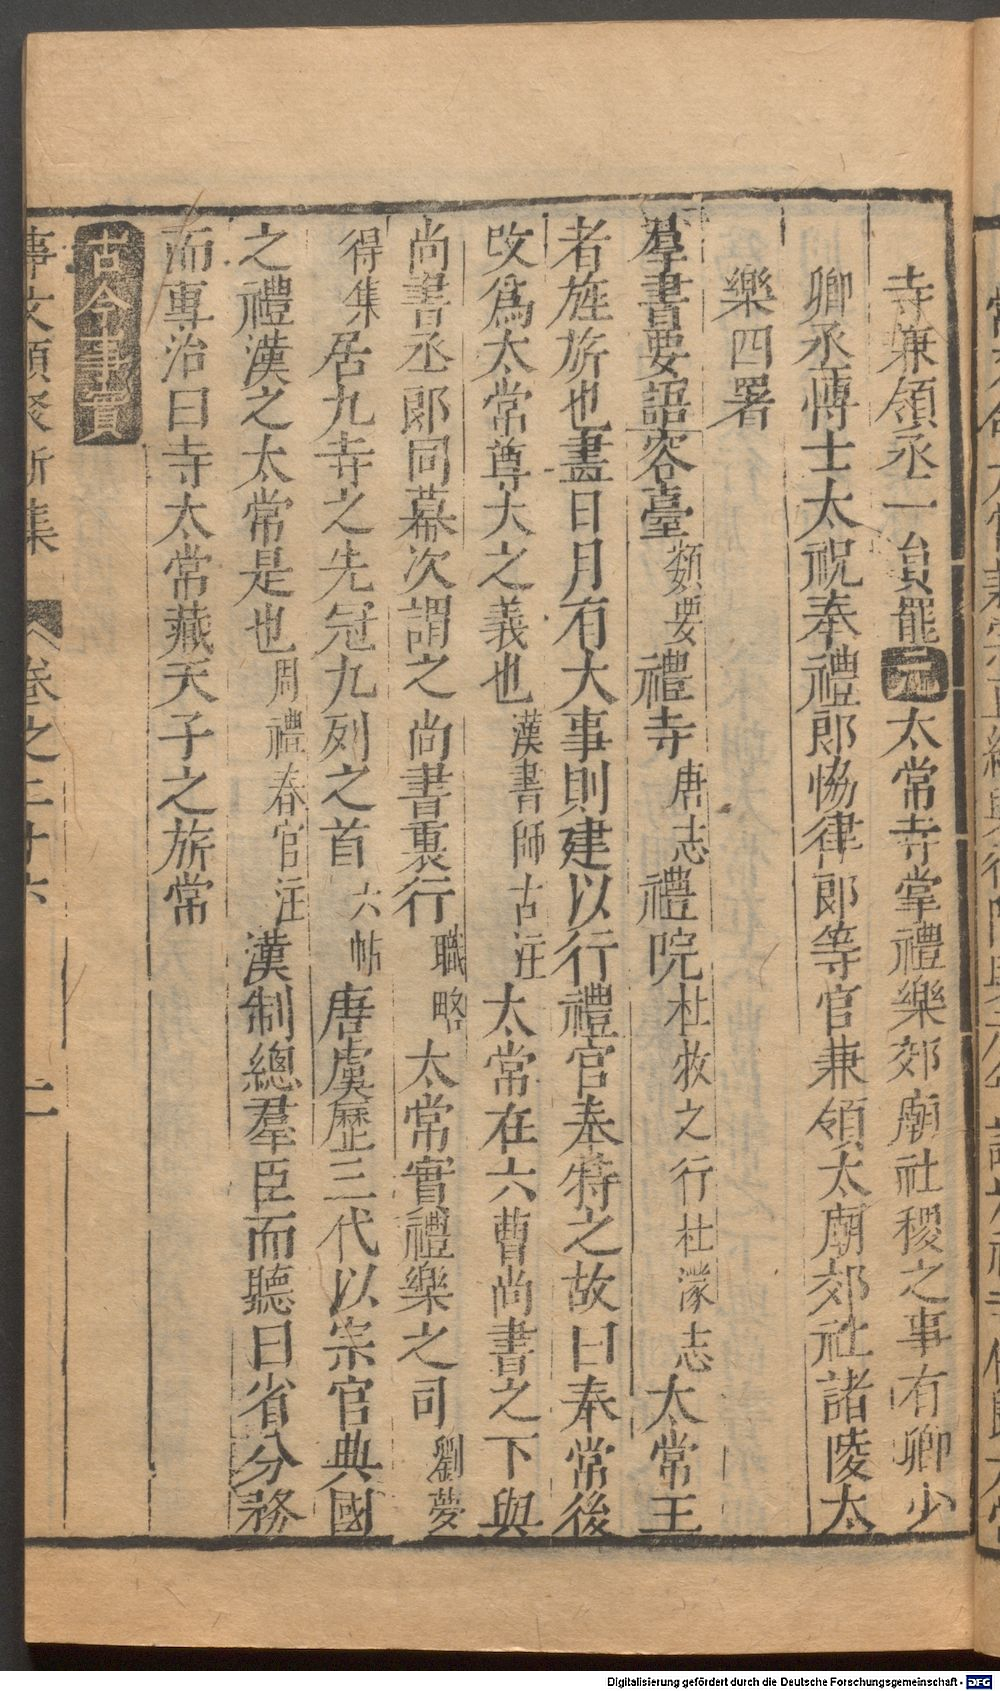 寺兼領丞一員罷元太常寺掌禮樂郊廟社稷之事有卿少
卿丞博士太祝奉禮郎恊律郎等官兼領太廟郊社諸陵太
樂四署
羣書要語容臺類要禮寺唐志禮院杜牧之行杜濛志太常王
者旌旂也畫日月有大事則建以行禮官奉特之故曰奉常後
攺爲太常尊大之義也漢書師古注太常在六曹尚書之下與
尚書丞郎同幕次謂之尚書裏行職略太常實禮樂之司劉夢
得集居九寺之先冠九列之首六帖唐虞歷三代以宗官典國
之禮漢之太常是也周禮春官注漢制總羣臣而聽曰省分務
而專治曰寺太常藏天子之旂常
古今事實
事文類聚新集 卷之二十六 二
Digitalisierung gefördert durch die Deutsche Forschungsgemeinschaft - DFG